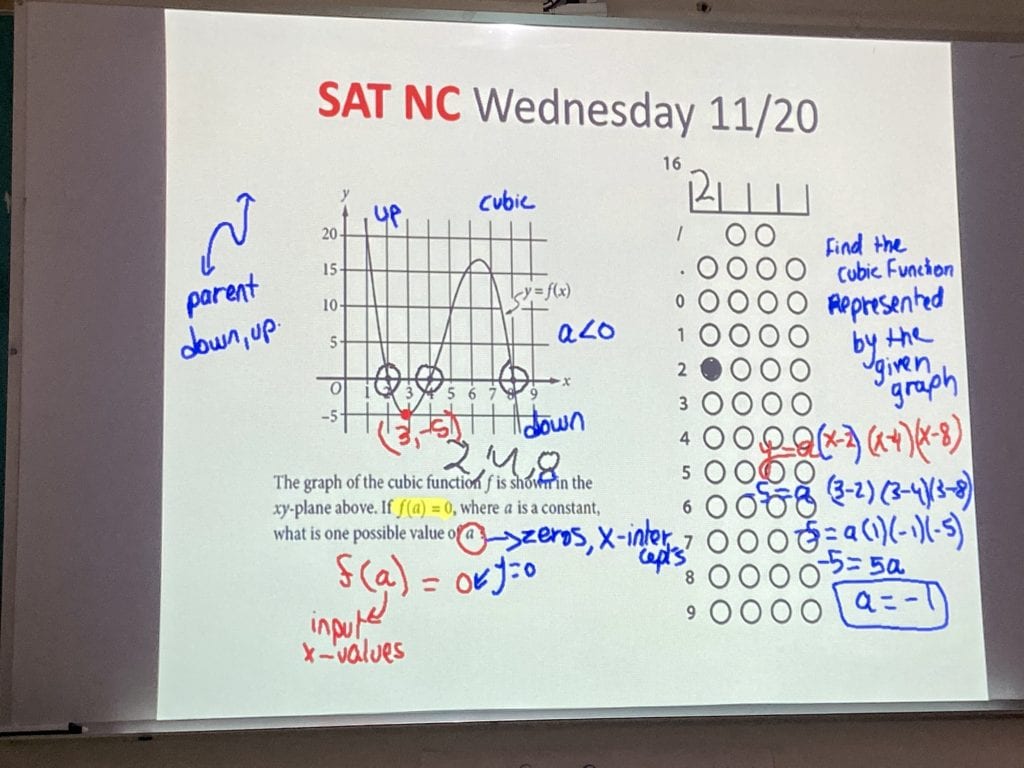 SAT NC Wednesday 11/20
16
2
y
up
cubic
20
15
10
5
O 1 2 3 4 5 6 7 8 9 x
-5
y = f(x)
a<0
parent
down, up.
(3,-5)
down
2, 4, 8
The graph of the cubic function f is shown in the
xy-plane above. If f(a) = 0, where a is a constant,
what is one possible value of a ?
→ zeros, x-inter
cepts
f(a) = 0
y=0
input
x-values
/
.
0
1
2
3
4
5
6
7
8
9
Find the
Cubic Function
Represented
by the
given
graph
y=a(x-2)(x-4)(x-8)
-5=a (3-2)(3-4)(3-8)
-5=a(1)(-1)(-5)
-5=5a
a=-1